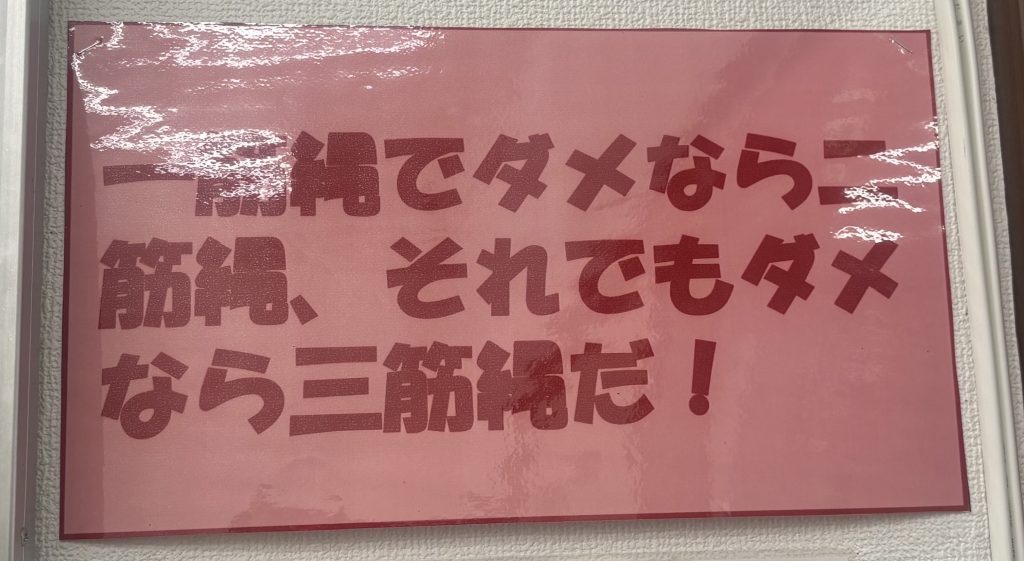 一筋縄でダメなら二
筋縄、それでもダメ
なら三筋縄だ！